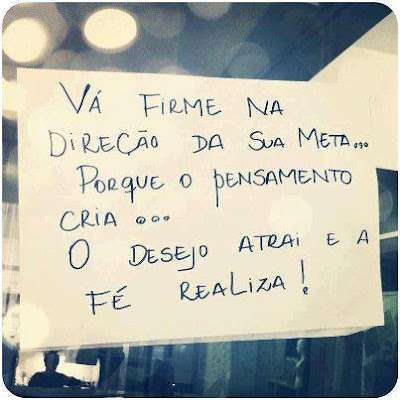 VÁ FIRME NA
DIREÇÃO DA SUA META...
PORQUE O PENSAMENTO
CRIA...
O DESEJO ATRAI E A
FÉ REALIZA!